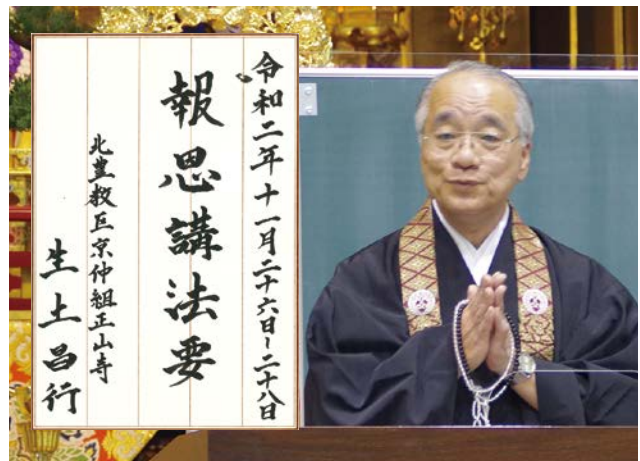 令和二年十一月二十六日～二十八日
報恩講法要
北豊教区京仲組正山寺
生土昌行